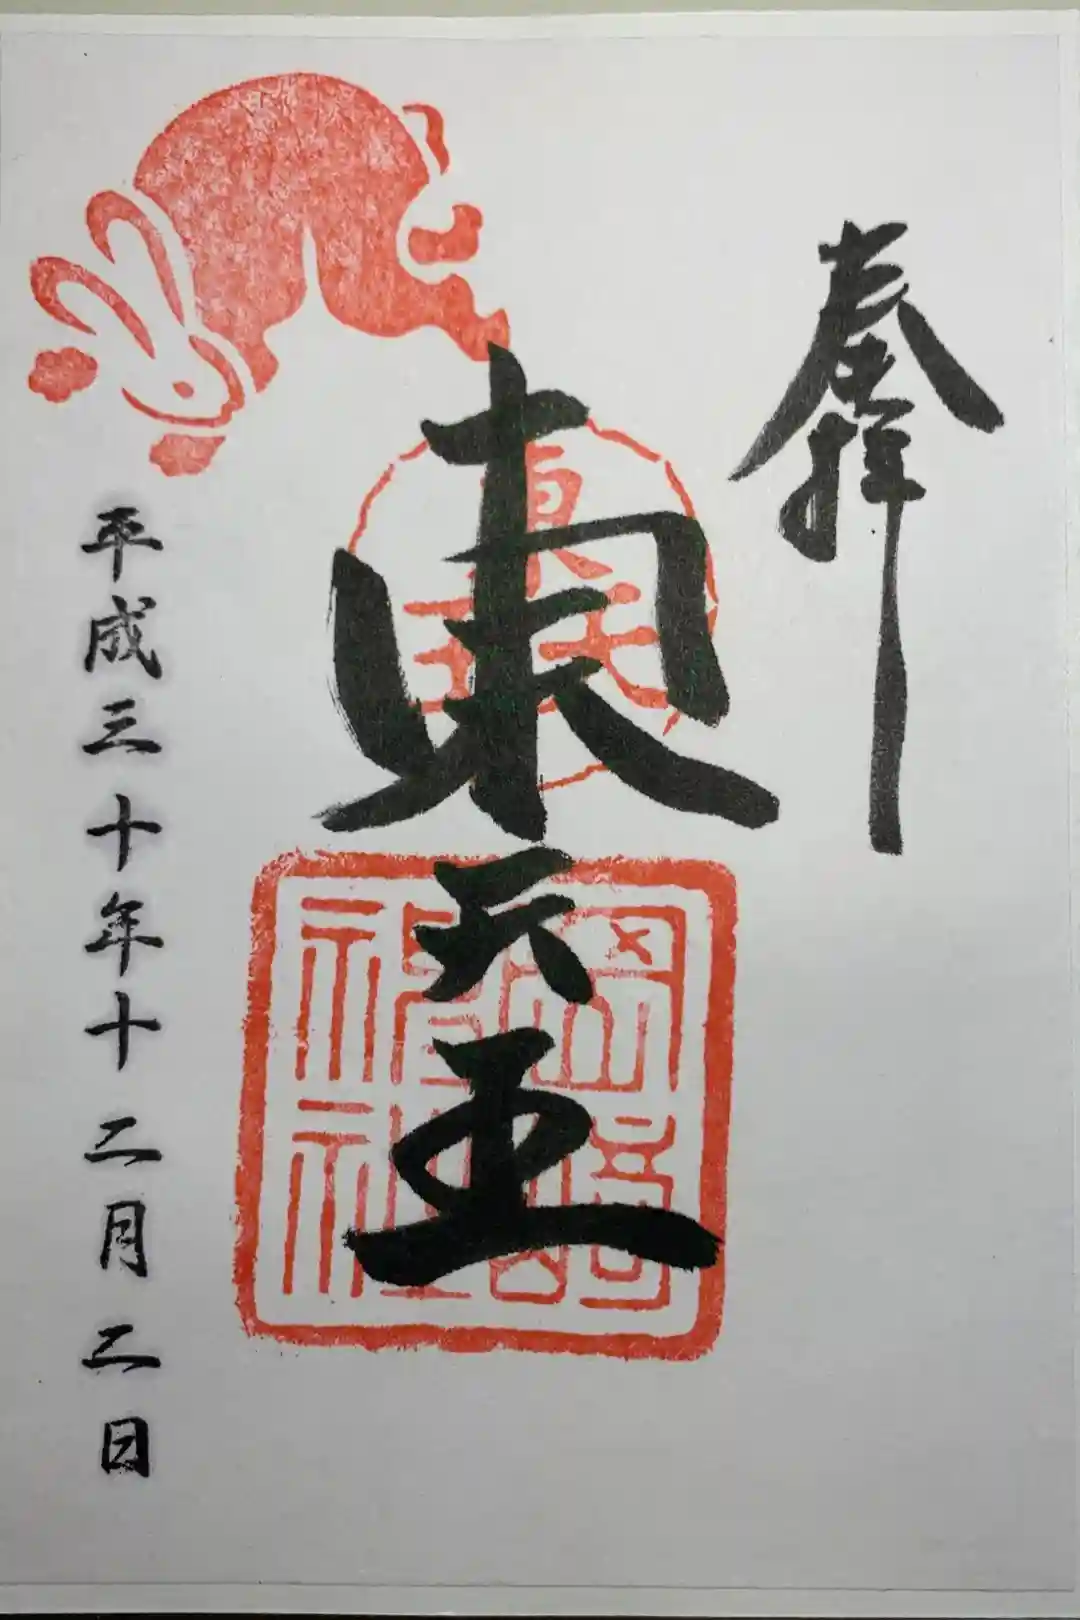 奉拝
東天王
東天王
岡崎神社
平成三十年十二月二日